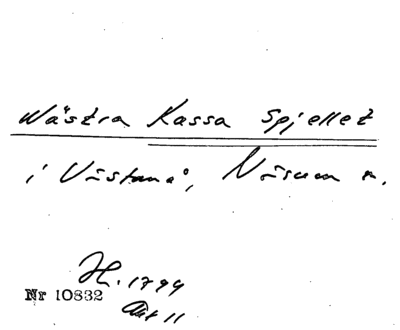 Wästra Kassa Spjellet
i Västanå, Näsum s.
H. 1799
Nr 10832
Akt 11